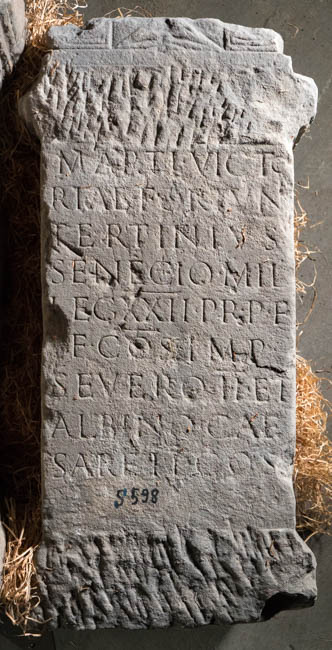 MARTI VICTO
RIAE FORTVN
TERTINIVS
SENECIO MIL
LEG XXII PR P F
F C O S IMP
SEVERO II ET
ALBINO CAE
SARE II COS
S 598